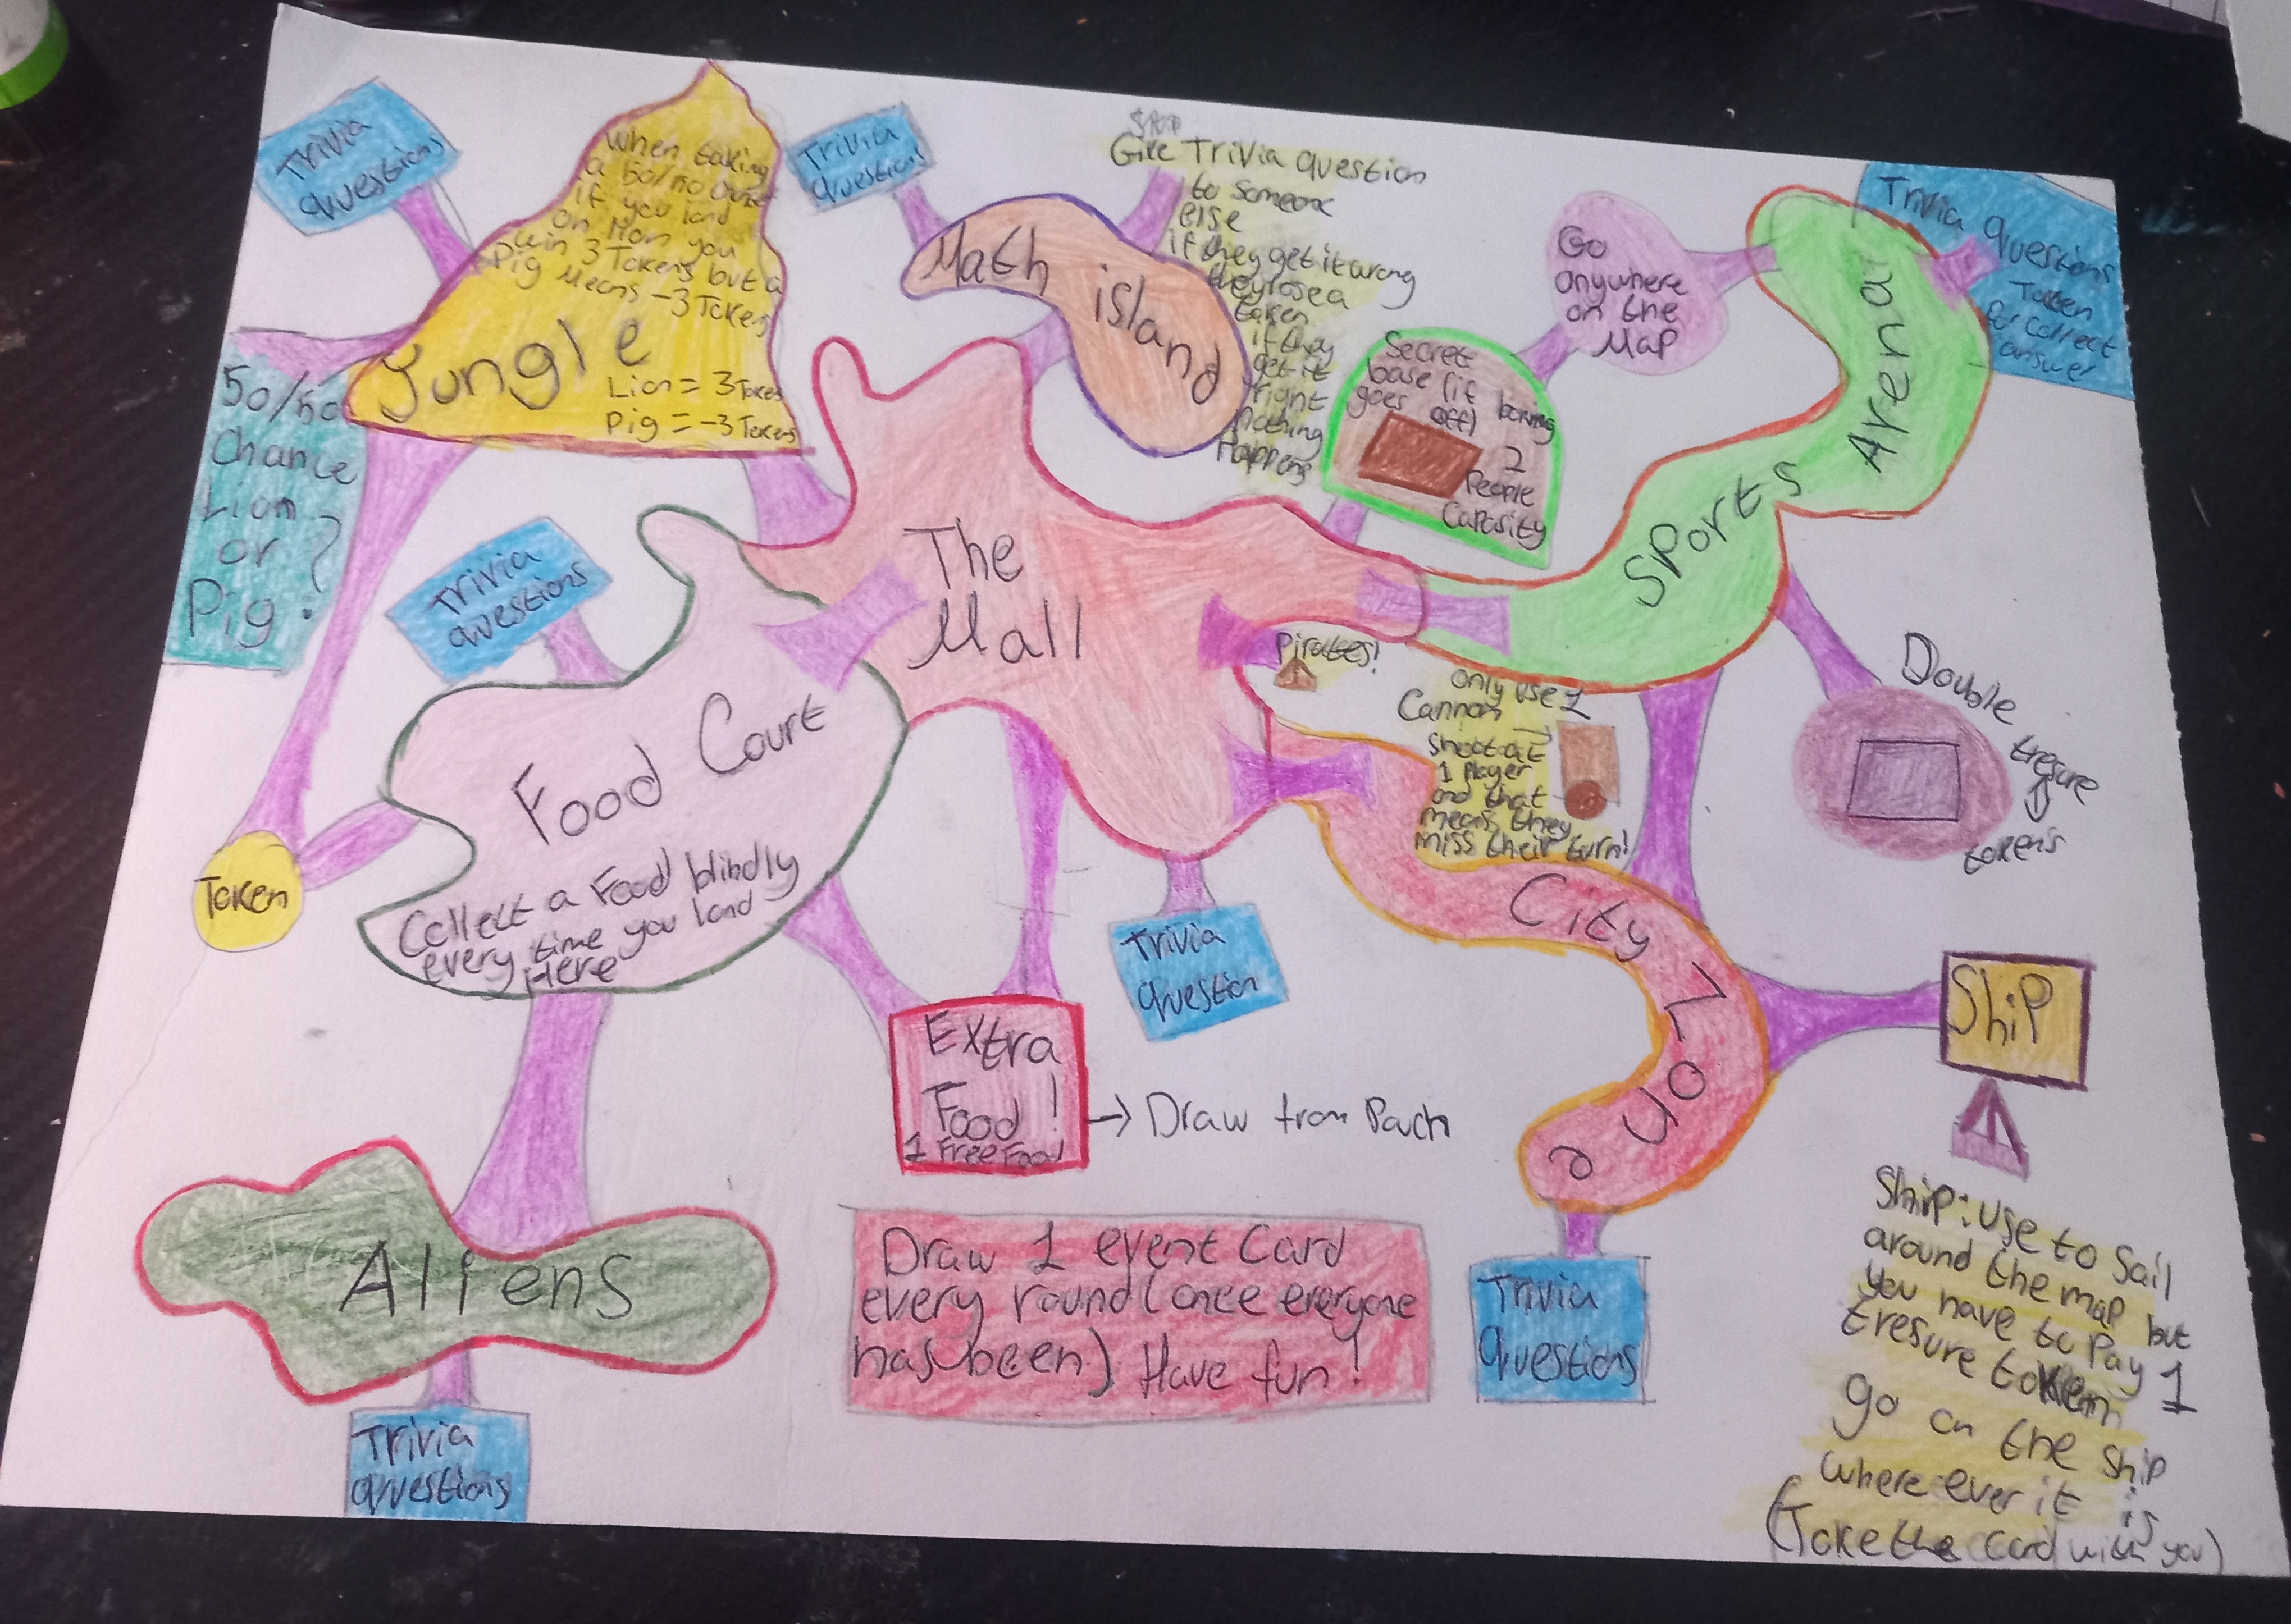 Trivia
questions
When taking
a 50/50 chance
if you land
on lion you
win 3 Tokens but a
Pig Means -3 Tokens
Jungle
Lion = 3 Tokens
Pig = -3 Tokens
50/50
Chance
Lion
or
Pig?
Trivia
questions
Math island
Give Trivia question
to someone
else
if they get it wrong
they lose a
token
if they
get it
right
nothing
Happens
Secret
base (if
goes off)
2
People
Capasity
Go
anywhere
on the
Map
Trivia questions
Token
for correct
answer
Sports Arena
The
Mall
Trivia
questions
Food Court
Collect a Food blindly
every time you land
Here
Token
Pirates!
only use 1
Cannon
shoot at
1 player
and that
means they
miss their turn!
Double
tresure
tokens
City Zone
Ship
Trivia
question
Extra
Food!
1 Free Food
→ Draw from Pach
Aliens
Trivia
questions
Draw 1 event Card
every round (once everyone
has been) Have fun!
Trivia
questions
Ship: Use to Sail
around the map but
you have to Pay 1
tresure token
go on the ship
where ever it is
(Take the Card with you)